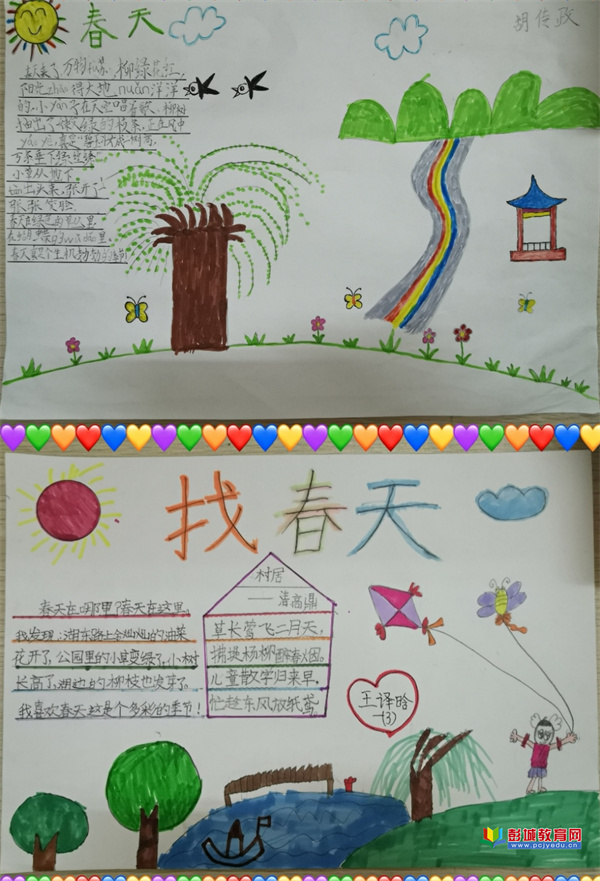 春天
胡传政
春天来了,万物复苏,柳绿花红,
阳光zhào得大地nuǎn洋洋
的,小yàn子在天空唱着歌、柳树
抽出了嫩绿的枝条,在风中
万条垂下绿丝绦
小草从地下
找春天
春天在哪里?春天在这里。
我发现:湖东路上金灿灿的油菜
花开了,公园里的小草变绿了,小树
长高了,湖边的柳枝也发芽了。
我喜欢春天这是个多彩的季节!
村居
——清高鼎
草长莺飞二月天,
拂堤杨柳醉春烟。
儿童散学归来早,
忙趁东风放纸鸢。
王译晗
一(3)
彭城教育网
www.pcjyedu.cn